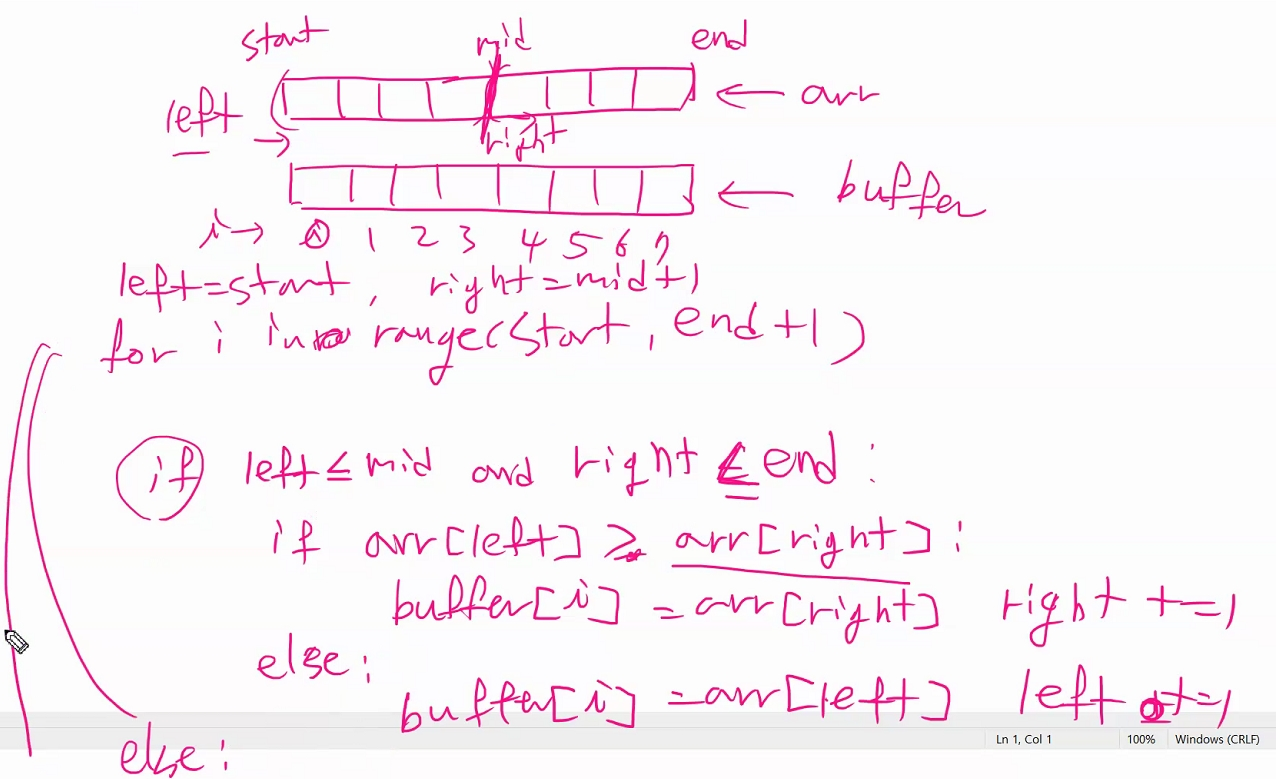 start mid end
left → ← arr
right
← buffer
i → 0 1 2 3 4 5 6 7
left=start, right=mid+1
for i in range(start, end+1)
if left ≤ mid and right ≤ end:
if arr[left] ≥ arr[right]:
buffer[i] = arr[right] right +=1
else:
buffer[i] = arr[left] left +=1
Ln 1, Col 1 100% Windows (CRLF)
else: